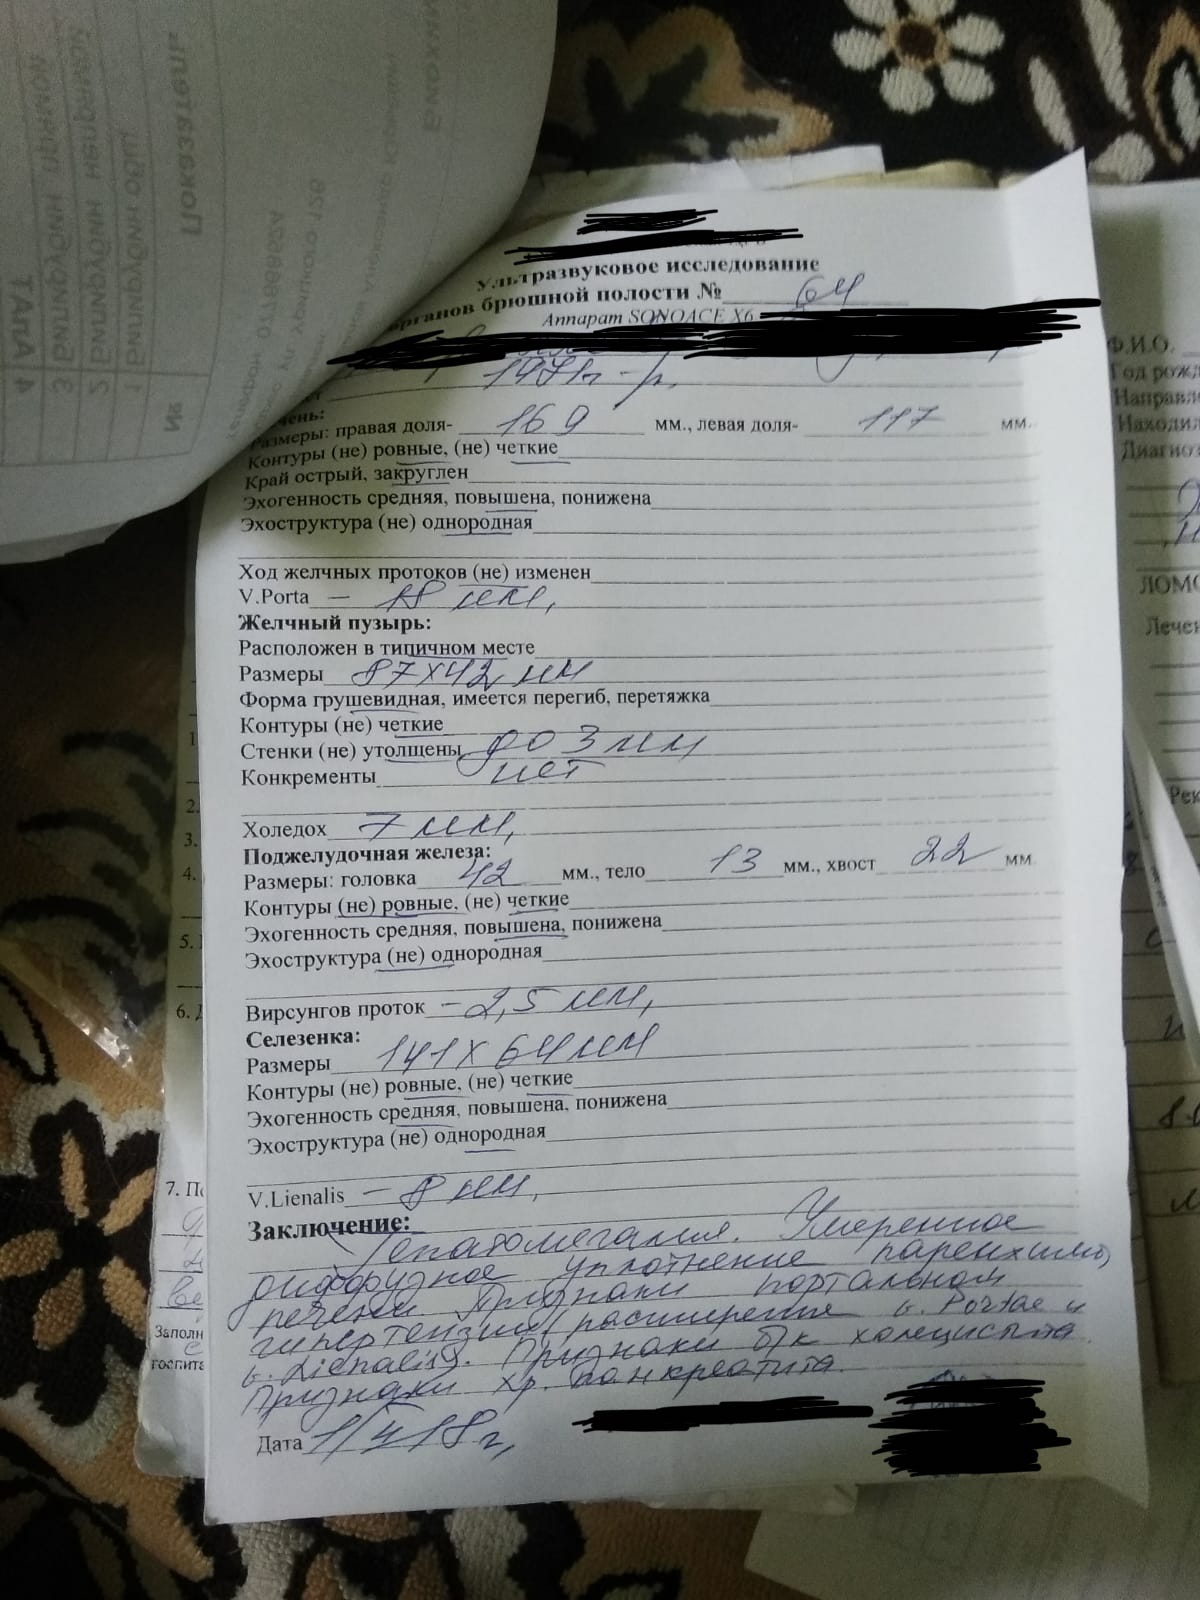 Ультразвуковое исследование
органов брюшной полости № 64
Аппарат SONOACE X6
1971г-р.
Размеры: правая доля- 169 мм., левая доля- 117 мм.
Контуры (не) ровные, (не) четкие
Край острый, закруглен
Эхогенность средняя, повышена, понижена
Эхоструктура (не) однородная
Ход желчных протоков (не) изменен
V.Porta – 18 мм,
Желчный пузырь:
Расположен в типичном месте
Размеры 87х42 мм
Форма грушевидная, имеется перегиб, перетяжка
Контуры (не) четкие
Стенки (не) утолщены до 3 мм
Конкременты нет
Холедох 7 мм,
Поджелудочная железа:
Размеры: головка 42 мм., тело 13 мм., хвост 22 мм.
Контуры (не) ровные, (не) четкие
Эхогенность средняя, повышена, понижена
Эхоструктура (не) однородная
Вирсунгов проток – 2,5 мм,
Селезенка:
Размеры 141 х 64 мм
Контуры (не) ровные, (не) четкие
Эхогенность средняя, повышена, понижена
Эхоструктура (не) однородная
V.Lienalis – 8 мм,
Заключение: Гепатомегалия. Умеренное
диффузное уплотнение паренхимы
печени. Признаки портальной
гипертензии (расширение v. Portae и
v. Lienalis). Признаки б/к холецистита.
Признаки хр. панкреатита.
Дата
Показатель
№
1 Билирубин общ
2 Билирубин непрямой
3 Билирубин прямой
4 ТАлА
Ф.И.О.
Год рожд
Направл
Находил
Диагноз
Лечен
Рек